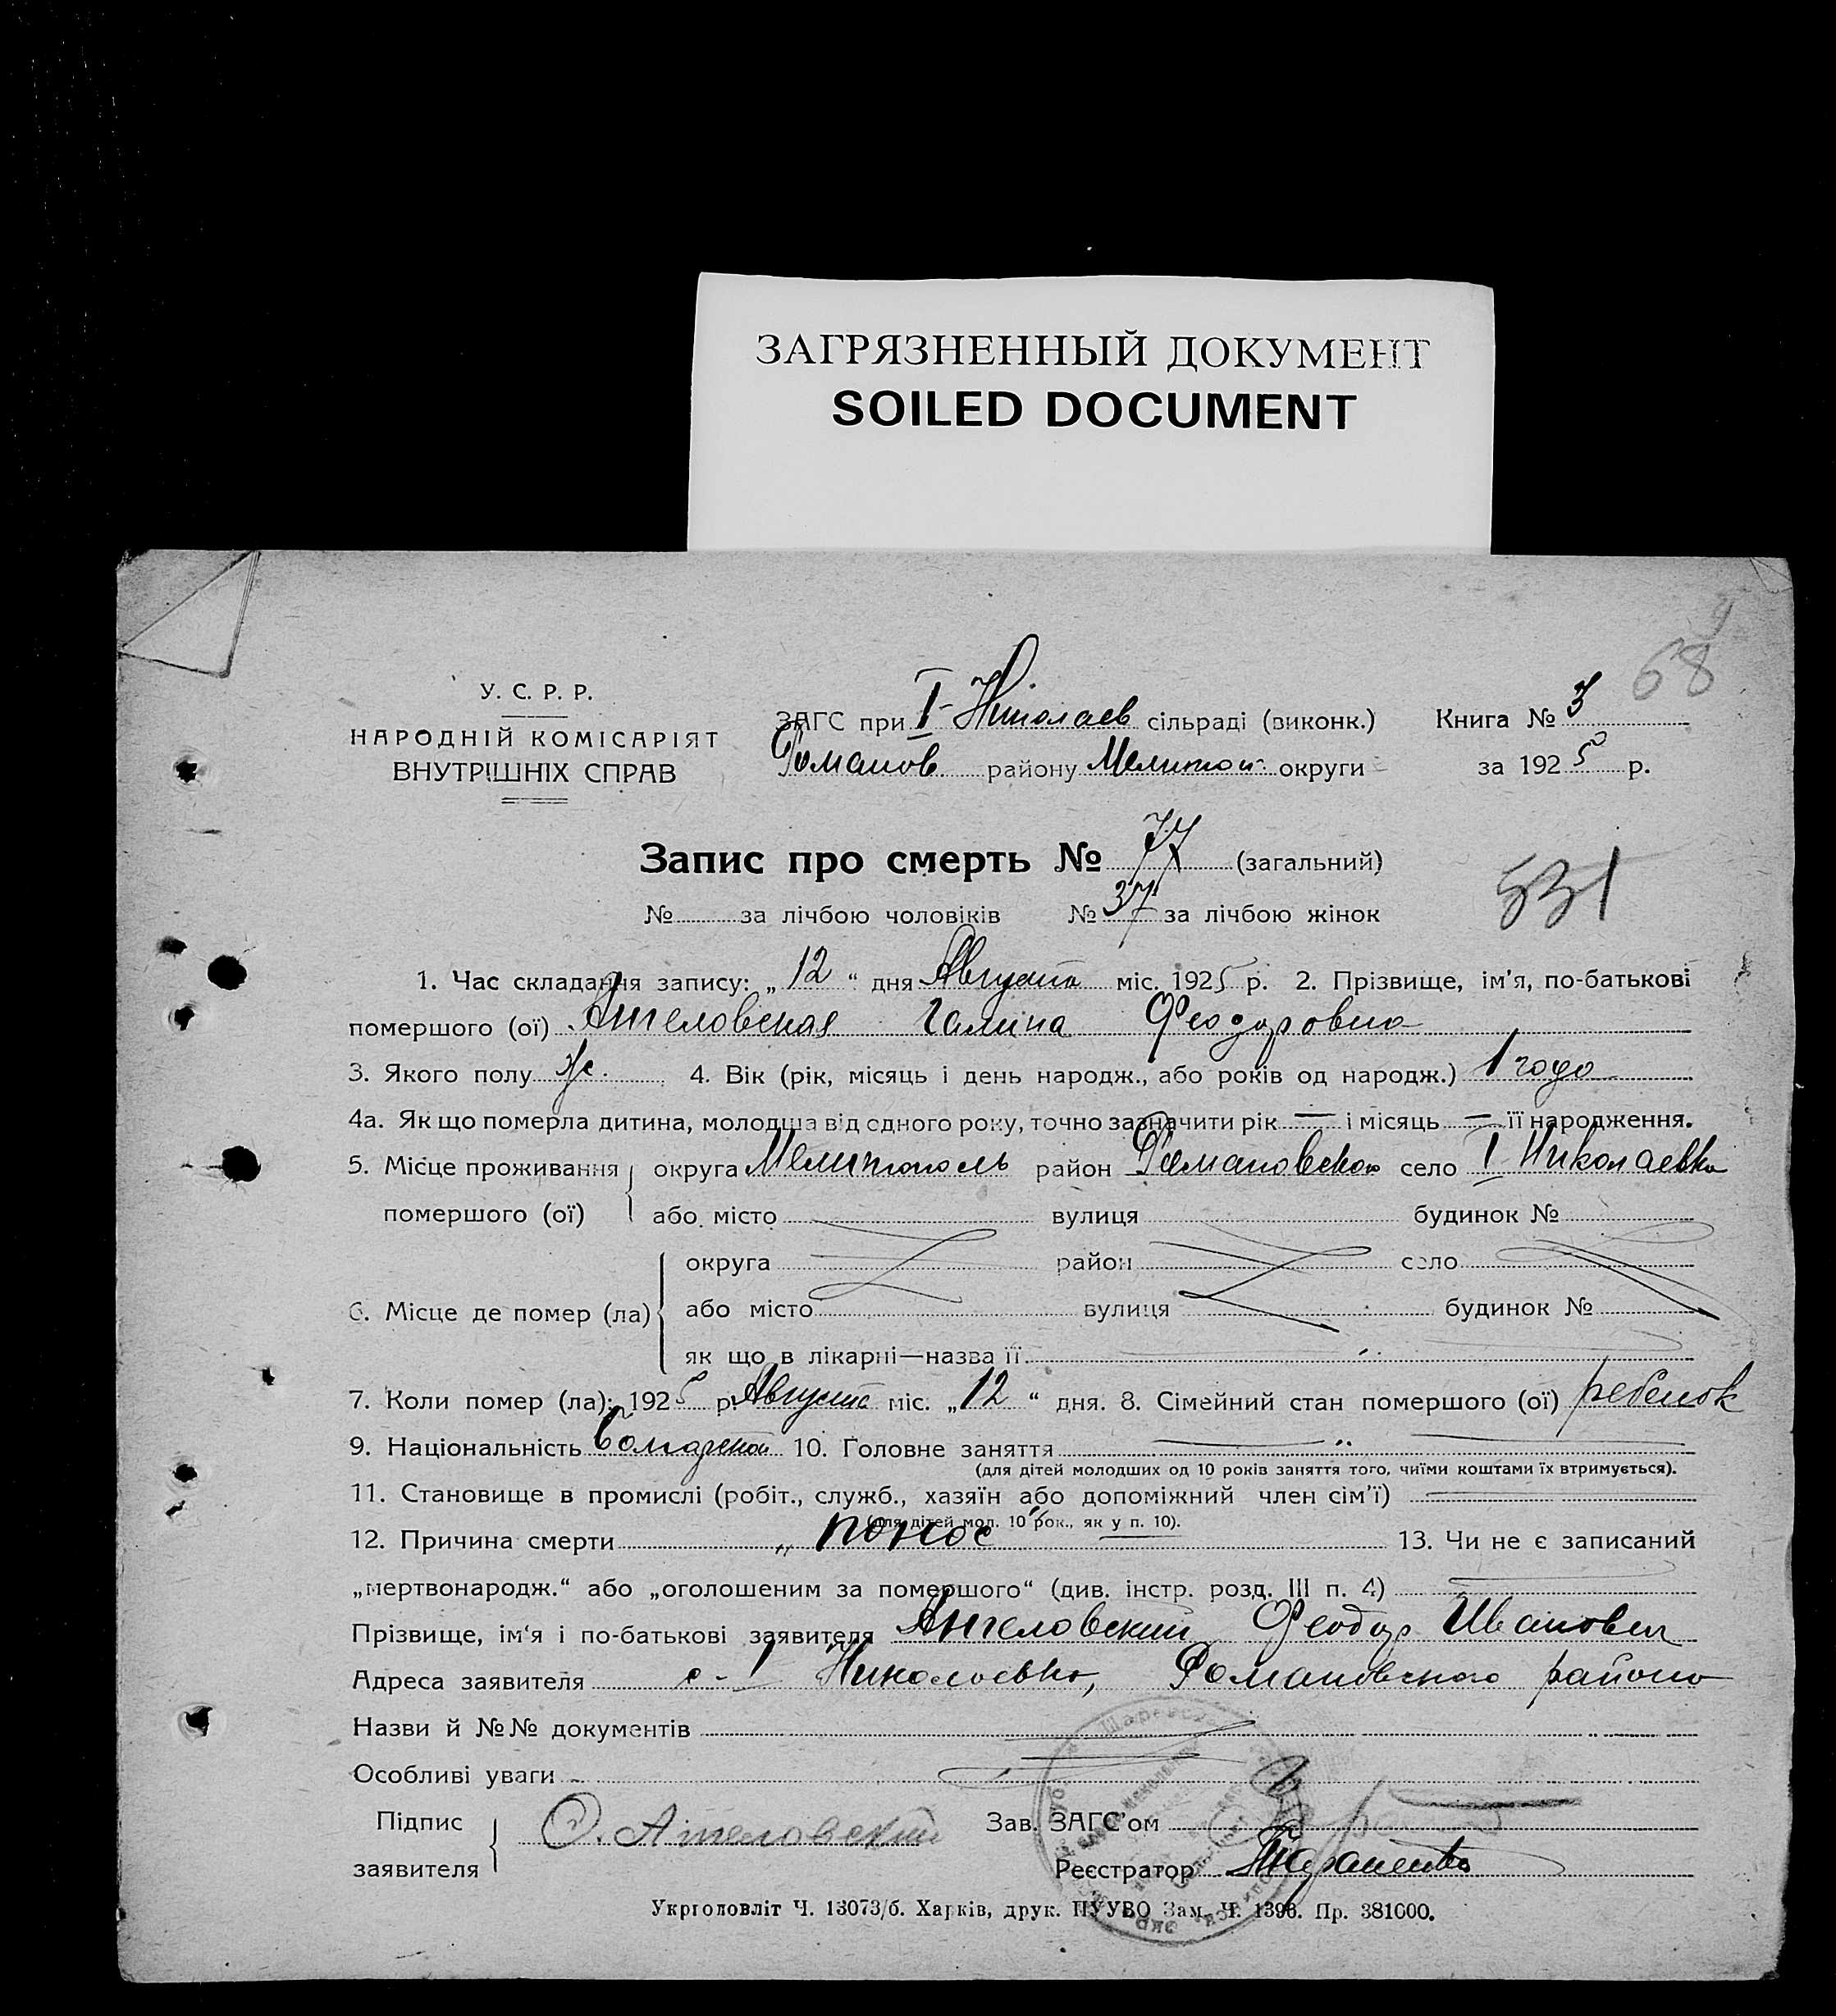 ЗАГРЯЗНЕННЫЙ ДОКУМЕНТ
SOILED DOCUMENT
68
У. С. Р. Р.
НАРОДНІЙ КОМІСАРІЯТ
ВНУТРІШНІХ СПРАВ
ЗАГС при I-Николаев сільраді (виконк.) Книга № 3
Романов району Мелитоп округи за 1925 р.
Запис про смерть № 77 (загальний)
531
№ за лічбою чоловіків № 37 за лічбою жінок
1. Час складання запису: „12“ дня Августа міс. 1925 р. 2. Прізвище, ім'я, по-батькові
помершого (ої) Ангеловская Галина Феодоровна
3. Якого полу ж. 4. Вік (рік, місяць і день народж., або років од народж.) 1 года
4а. Як що померла дитина, молодша від одного року, точно зазначити рік — і місяць — її народження.
5. Місце проживання округа Мелитополь район Романовского село I Николаевка
помершого (ої) або місто вулиця будинок №
округа район село
6. Місце де помер (ла) або місто вулиця будинок №
як що в лікарні—назва її
7. Коли помер (ла): 1925 р. Августа міс. „12“ дня. 8. Сімейний стан помершого (ої) ребенок
9. Національність 10. Головне заняття
(для дітей молодших од 10 років заняття того, чиїми коштами їх втримується).
11. Становище в промислі (робіт., служб., хазяїн або допоміжний член сім'ї)
(для дітей мол. 10 рок., як у п. 10).
12. Причина смерти „понос“ 13. Чи не є записаний
„мертвонародж.“ або „оголошеним за помершого“ (див. інстр. розд. III п. 4)
Прізвище, ім'я і по-батькові заявителя Ангеловский Феодор Иванович
Адреса заявителя с-I Николаевка, Романовского района
Назви й №№ документів
Особливі уваги
Підпис
заявителя
Ф. Ангеловский
Зав. ЗАГС'ом
Реєстратор
Укрголовліт Ч. 13073/б. Харків, друк. ПУУВО Зам. Ч. 1396. Пр. 381000.